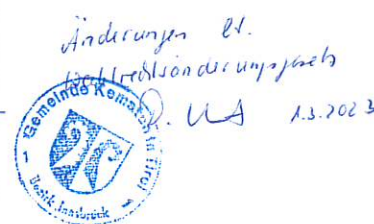 Änderungen lt.
Wahlrechtsänderungsgesetz
1.3.2023
Gemeinde Kematen in Tirol
1
Bezirk Innsbruck